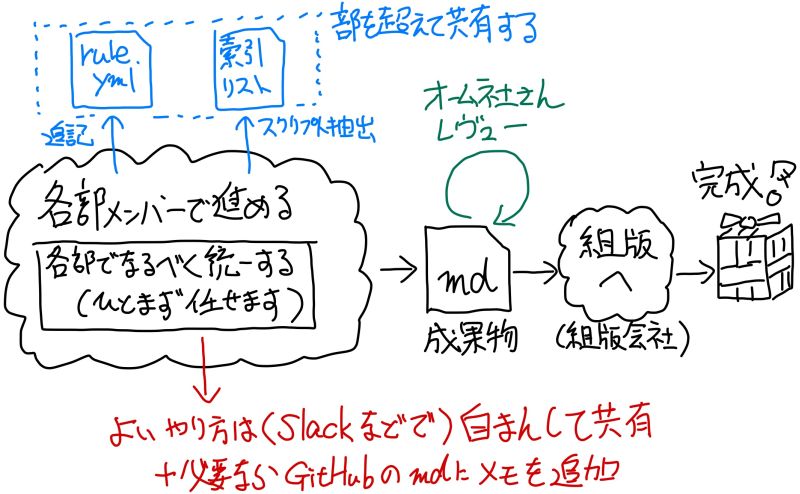 部を超えて共有する
rule.
yml
索引
リスト
追記
スクリプト抽出
オーム社さん
レヴュー
各部メンバーで進める
各部でなるべく統一する
(ひとまず任せます)
md
成果物
組版
へ
(組版会社)
完成
よいやり方は(Slackなどで)自まんして共有
+必要ならGitHubのmdにメモを追加